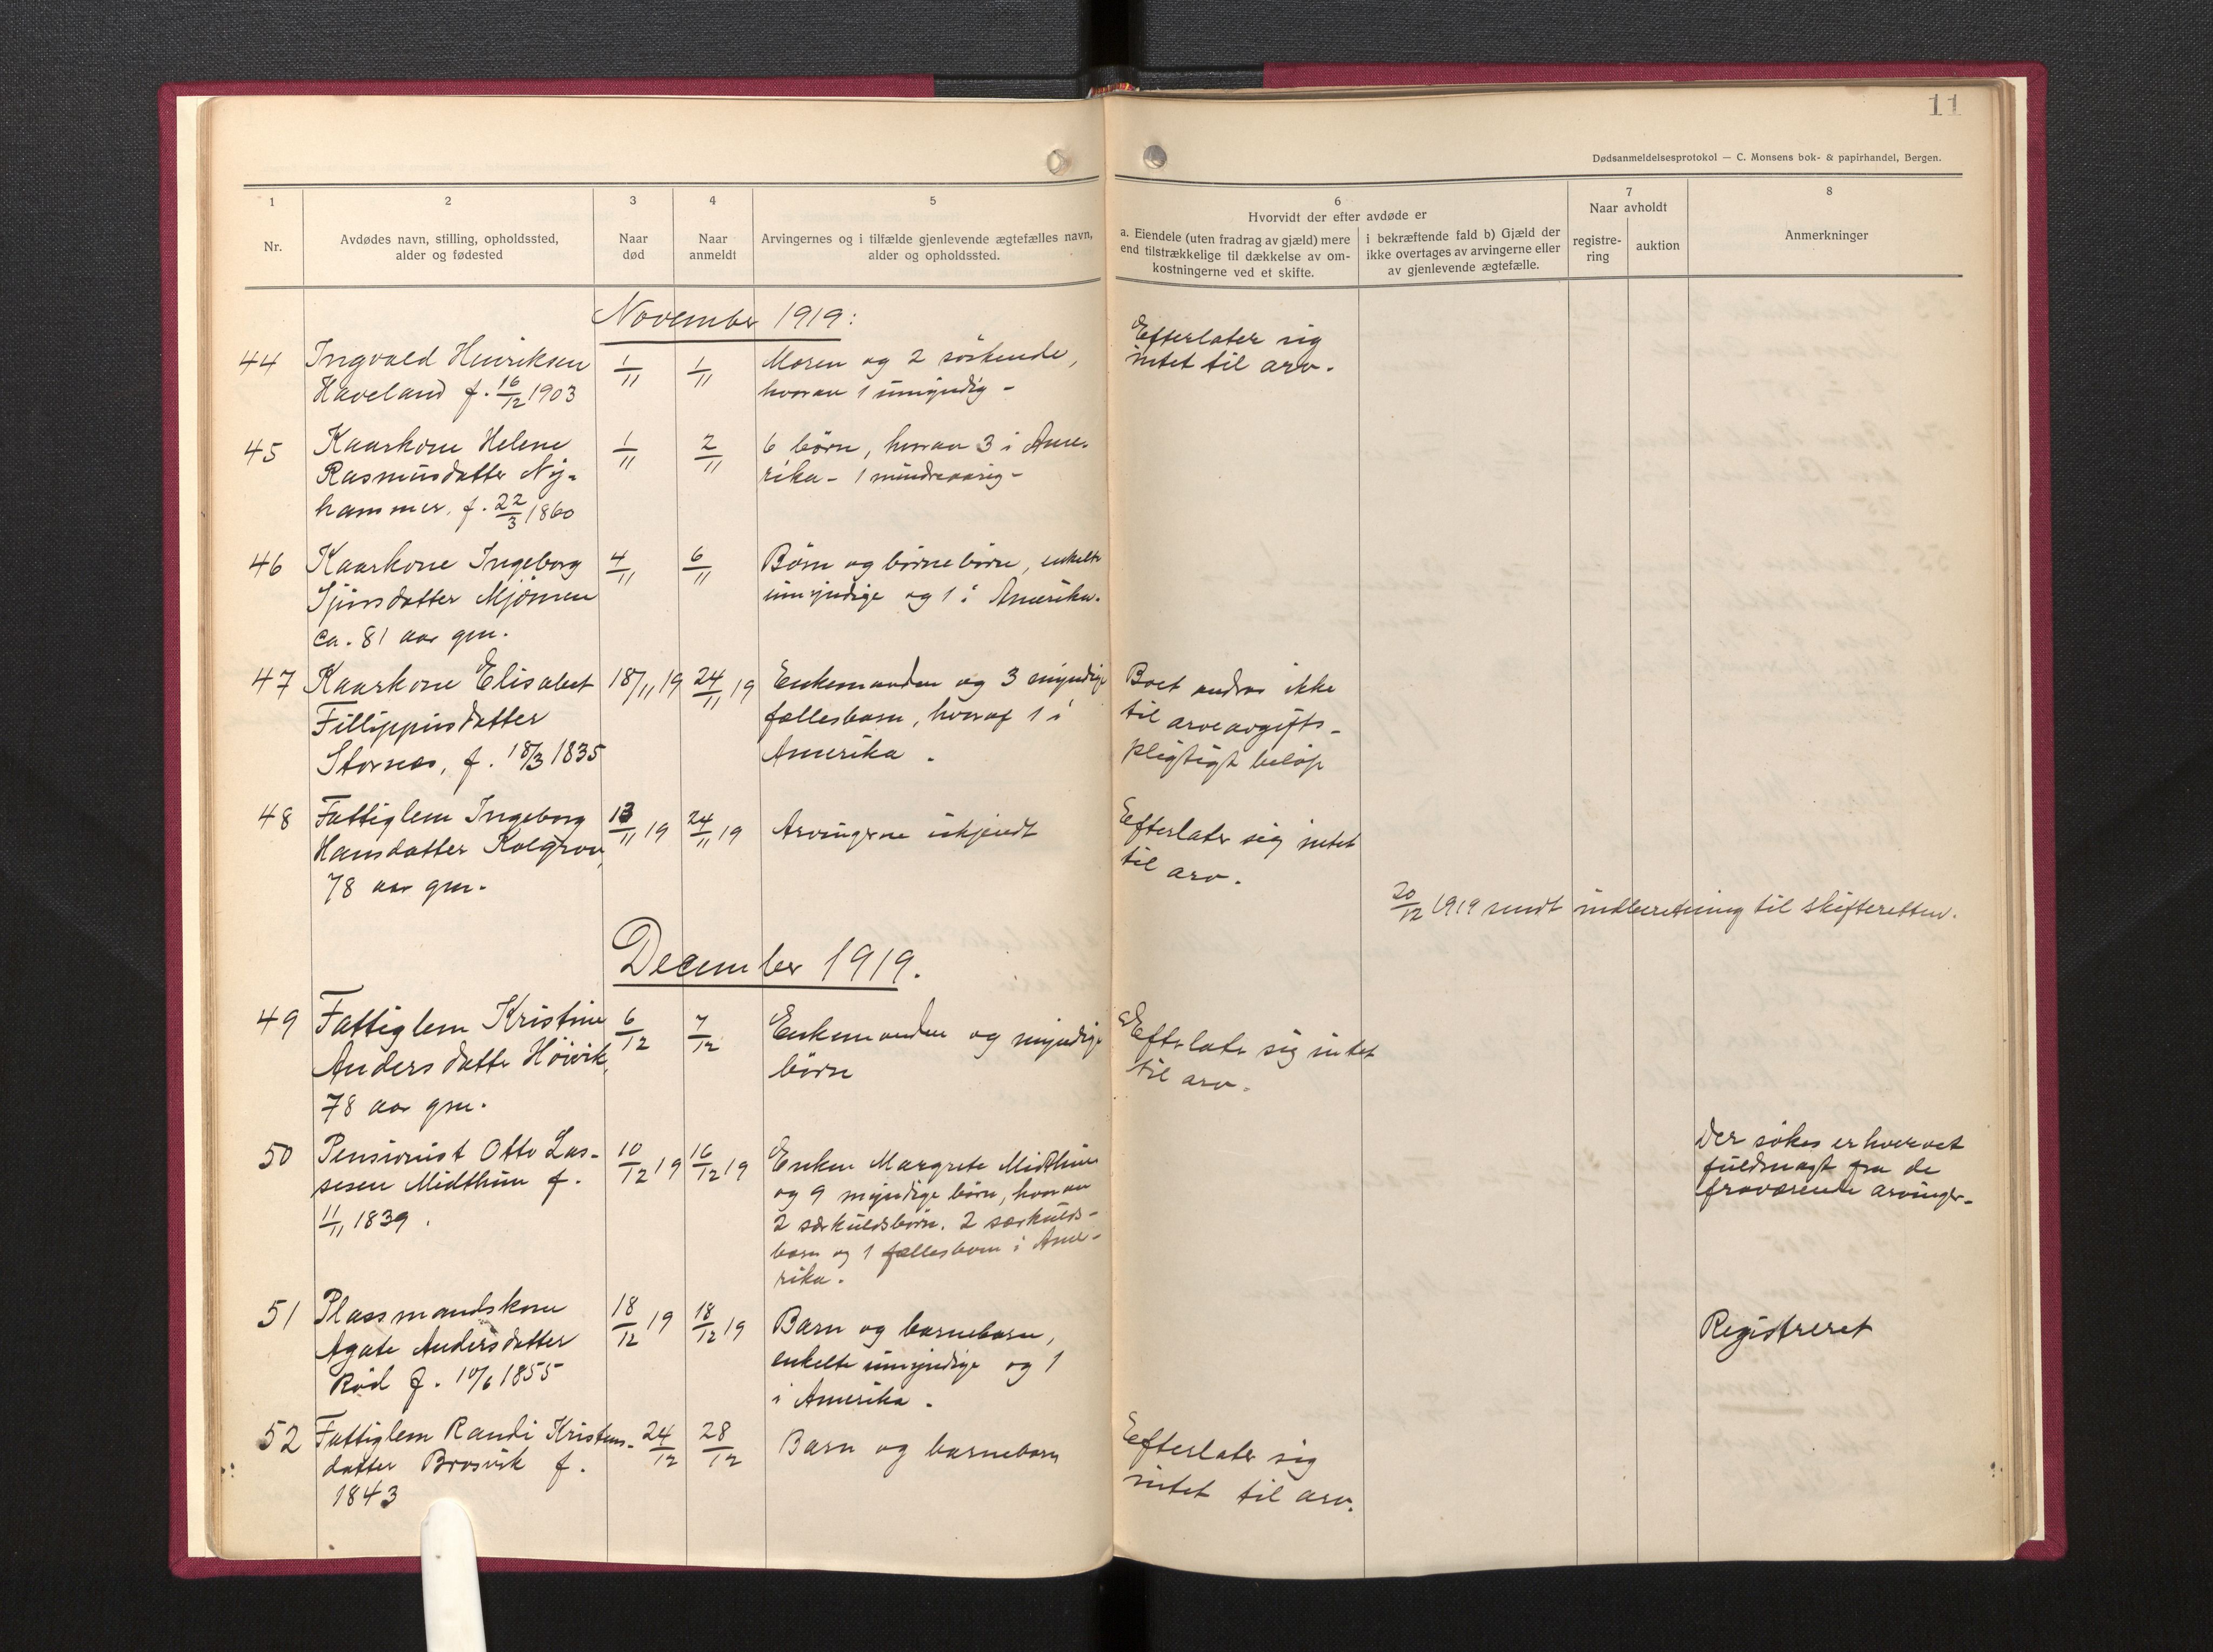 11
Dødsanmeldelsesprotokol — C. Monsens bok- & papirhandel, Bergen.
1 2 3 4 5 6 7 8
Nr.
Avdødes navn, stilling, opholdssted,
alder og fødested
Naar
død
Naar
anmeldt
Arvingernes og i tilfælde gjenlevende ægtefælles navn,
alder og opholdssted.
Hvorvidt der efter avdøde er
a. Eiendele (uten fradrag av gjæld) mere
end tilstrækkelige til dækkelse av om-
kostningerne ved et skifte.
i bekræftende fald b) Gjæld der
ikke overtages av arvingerne eller
av gjenlevende ægtefælle.
Naar avholdt
registre-
ring
auktion
Anmerkninger
November 1919:
44
Ingvald Henriksen
Haveland f. 16/12 1903
1/11
1/11
Moren og 2 søskende,
hvorav 1 umyndig -
Efterlater sig
intet til arv.
45
Kaarkone Helene
Rasmusdatter Ny-
hammer, f. 22/3 1860
1/11
2/11
6 børn, hvorav 3 i Ame-
rika - 1 mindreaarig -
46
Kaarkone Ingeborg
Sjursdatter Mjømen
ca. 81 aar gm.
4/11
6/11
Børn og børnebørn, enkelte
umyndige og 1 i Amerika.
47
Kaarkone Elisabet
Fillippusdatter
Stornes, f. 18/3 1835
18/11 19
24/11 19
Enkemanden og 3 myndige
fællesbarn, hvoraf 1 i
Amerika.
Boet andrar ikke
til arveavgifts-
pligtigt beløp
48
Fattiglem Ingeborg
Hansdatter Kolgrov,
78 aar gm.
13/11 19
24/11 19
Arvingerne ukjendt
Efterlater sig intet
til arv.
20/12 1919 sendt indberetning til skifteretten.
December 1919.
49
Fattiglem Kristine
Andersdatter Høivik,
78 aar gm.
6/12
7/12
Enkemanden og myndige
børn
Efterlater sig intet
til arv.
50
Pensionist Otto Las-
sesen Midthun f.
11/11 1839.
10/12 19
16/12 19
Enken Margrete Midthun
og 9 myndige børn, hvorav
2 særkuldsbørn. 2 særkulds-
barn og 1 fællesbarn i Ame-
rika.
Der søkes erhvervet
fuldmagt fra de
fraværende arvinger.
51
Plassmandskone
Agate Andersdatter
Rød f. 10/6 1855
18/12 19
18/12 19
Barn og barnebarn,
enkelte umyndige og 1
i Amerika.
Registreret
52
Fattiglem Randi Kristens-
datter Brosvik f.
1843
24/12
28/12
Barn og barnebarn
Efterlater sig
intet til arv.